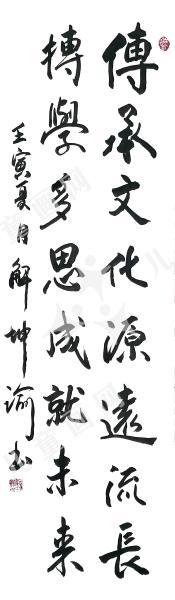 傳承文化源遠流長
摶學多思成就未来
壬寅夏月解坤瑜书